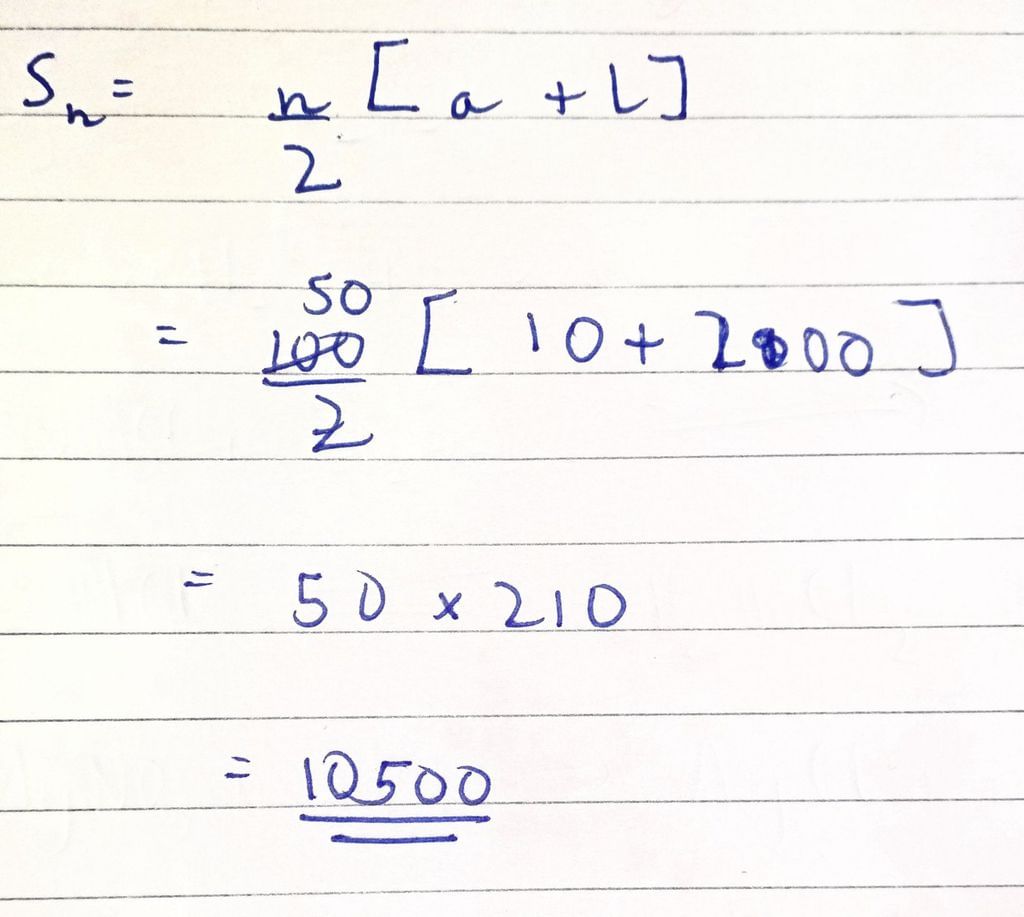 Sn = n/2 [a + L]
= 50
100/2 [10 + 2000]
= 50 x 210
= 10500